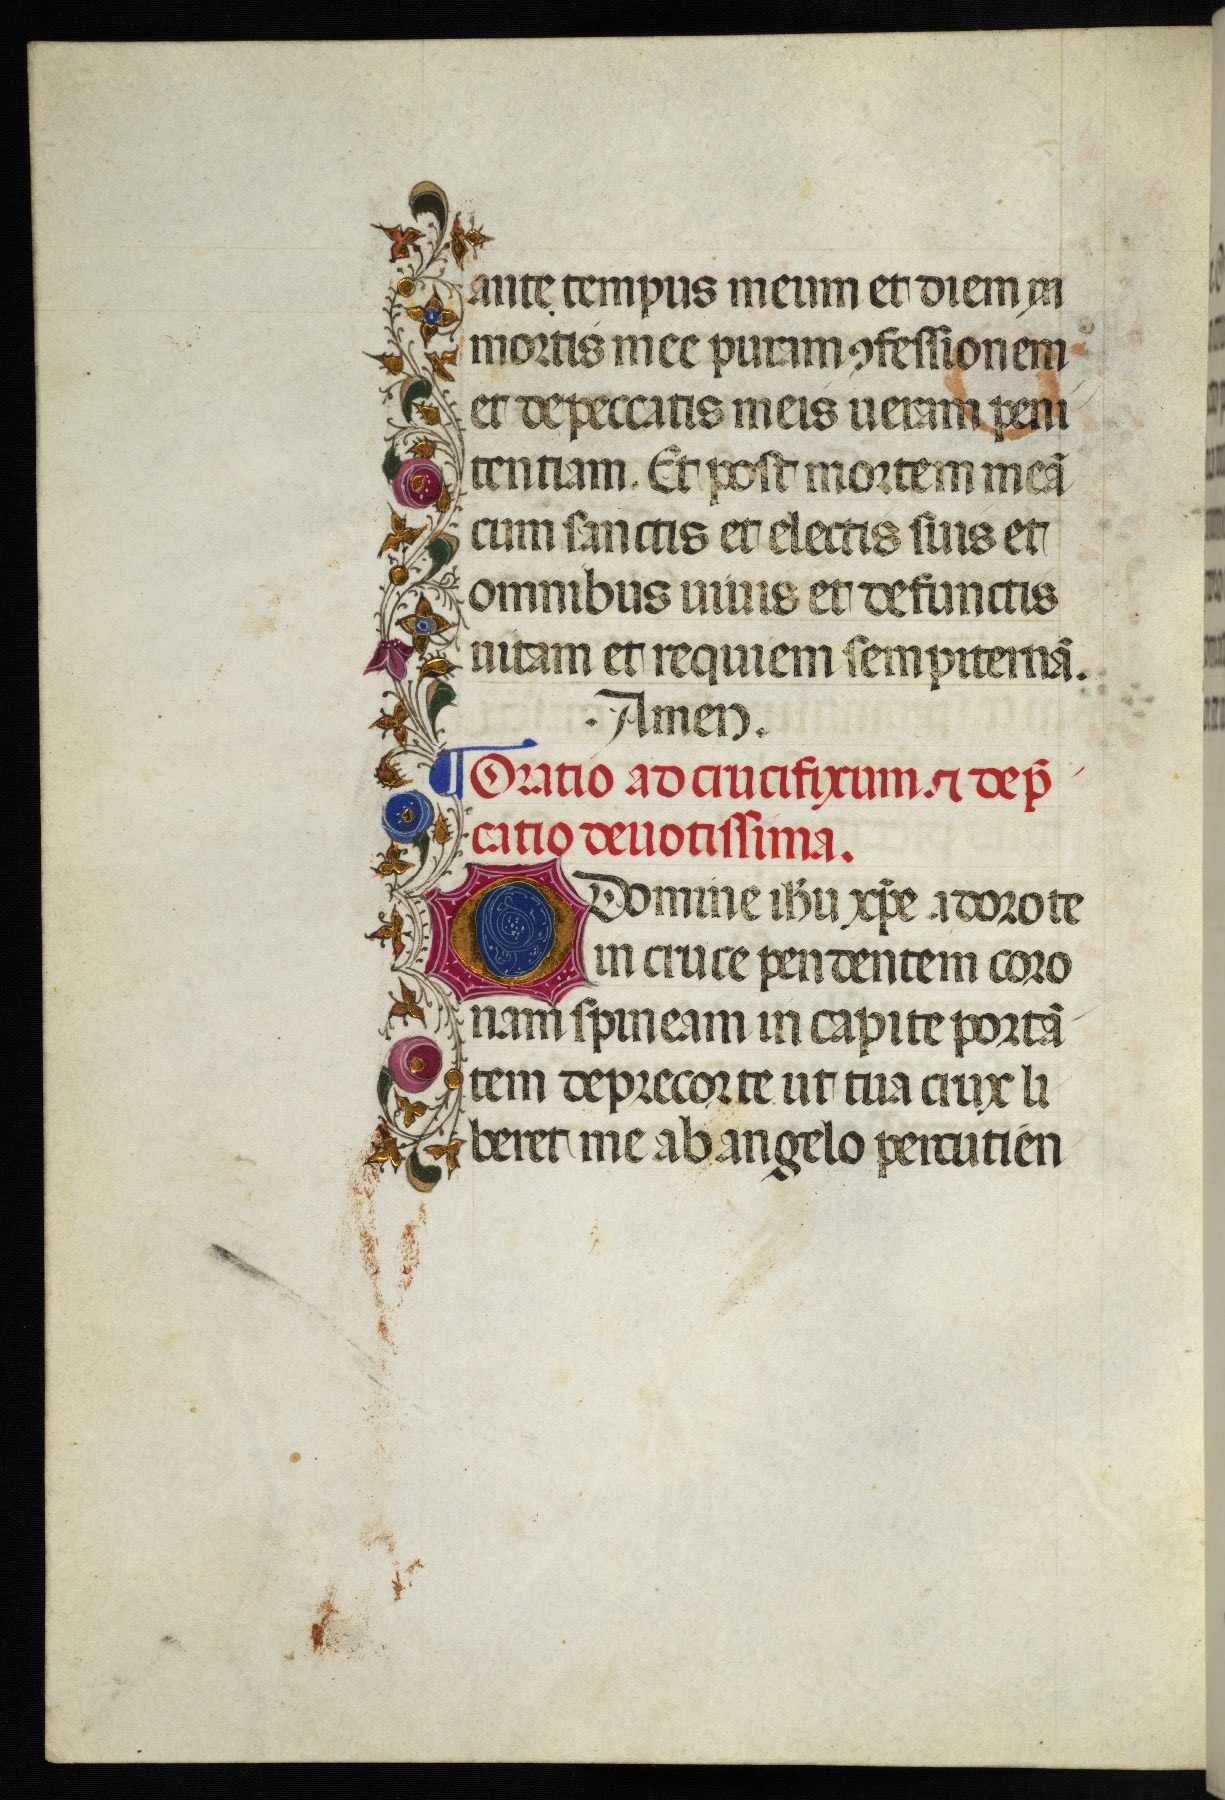 ante tempus meum et diem m
mortis mee puram ꝯfessionem
et de peccatis meis ueram peni
tentiam. Et post mortem meā
cum sanctis et electis suis et
omnibus uiuis et defunctis
uitam et requiem sempiternā.
Amen.
Oratio ad crucifixum. et dep̄
catio deuotissima.
O Domine ihū xp̄e adoro te
in cruce pendentem coro
nam spineam in capite portā
tem deprecor te ut tua crux li
beret me ab angelo percutien